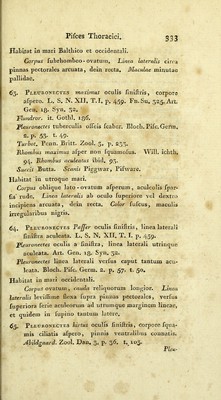 Pisces Thoracici. 333
Habitat in mari Balthico et occidentali.
Corpus subrhombeo-ovatum, Linea lateralis circa
pinnas pectorales arcuata, dein recta. Maculae minutae
pallidae.
63. Pleuronectes maximus oculis sinistris, corpore
aspero. L. S. N. XII, T. I, p. 459. Fn. Su. 325. Art.
Gen. 18. Syn. 32.
Piundror. it. Gothl. 196.
Pleuronectes tuberculis osseis scaber. Bloch. Pisc. Germ.
2. p. 53. t. 49.
Turbot, Penn. Britt. Zool. 3, p. 233.
Rhombus maximus asper non squamosus. Will. ichth.
94. Rhombus aculeatus ibid, 93.
Svecis Butta. Scanis Piggwar, Pifware.
Habitat in utroque mari.
Corpus oblique lato-ovatum asperum, aculeolis spar-
sis rude. Linea lateralis ab oculo superiore vel dextro
incipiens arcuata, dein recta. Color fuscus, maculis
irregularibus nigris.
64. Pleuronectes Passer oculis sinistris, linea laterali
sinistra aculeata. L. S. N. XII, T. I. p. 459.
Pleuronectes oculis a sinistra, linea laterali utrinque
aculeata. Art. Gen. 18. Syn. 32.
Pleuronectes linea laterali versus caput tantum acu-
leata. Bloch. Pisc. Germ. 2. p. 57. t. 50.
Habitat in mari occidentali.
Corpus ovatum, cauda reliquorum longior. Linea
lateralis levissime flexa supra pinnas pectorales, versus
superiora serie aculeorum ad utrumque marginem lineae,
et quidem in supino tantum latere.
65. Pleuronectes hirtus oculis sinistris, corpore squa-
mis ciliatis aspero, pinnis ventralibus connatis.
Abildgaard. Zool. Dan. 3, p. 36. t. 103.
Pleu-